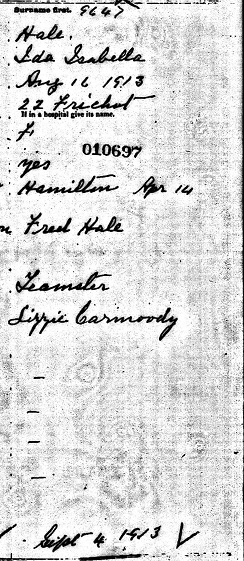 Surname first. 9647
Hale.
Ida Isabella
Aug 16 1913
22 Frichot
If in a hospital give its name.
F
010697
yes
Hamilton Apr 14
Fred Hale
Teamster
Lizzie Carmoody
—
—
—
—
Sept 4 1913